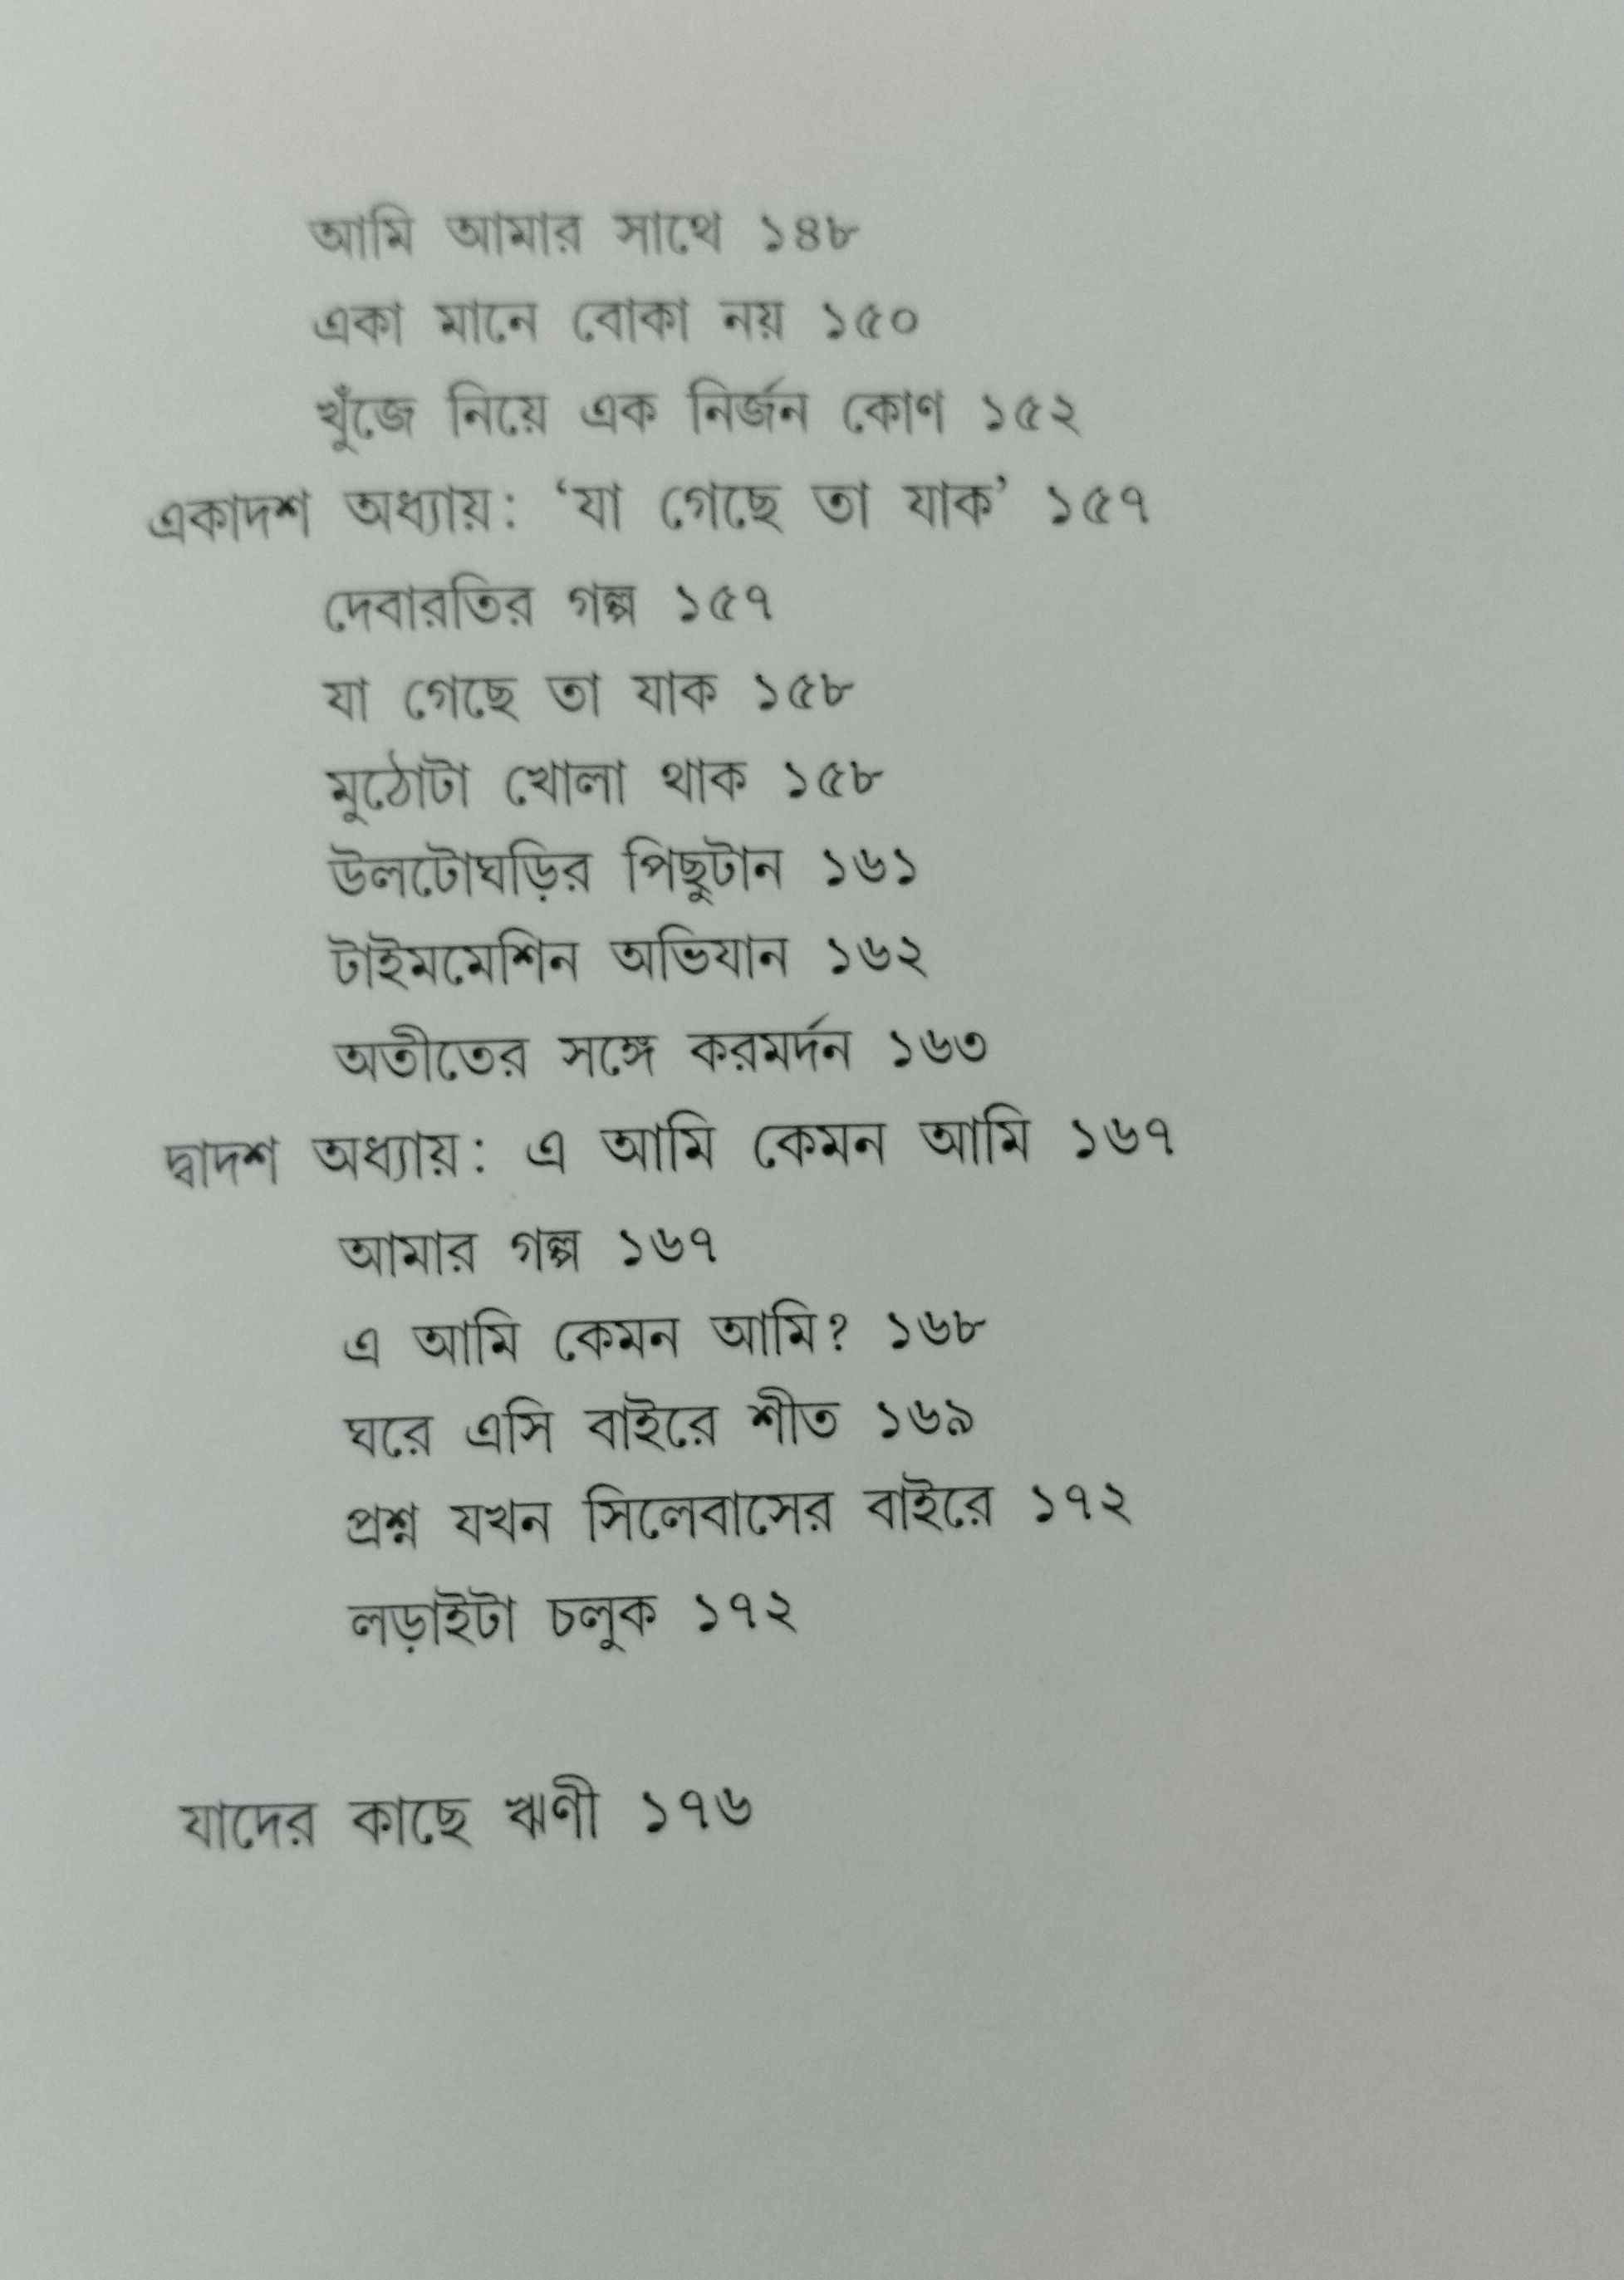 আমি আমার সাথে ১৪৮
একা মানে বোকা নয় ১৫০
খুঁজে নিয়ে এক নির্জন কোণ ১৫২
একাদশ অধ্যায়: ‘যা গেছে তা যাক’ ১৫৭
দেবারতির গল্প ১৫৭
যা গেছে তা যাক ১৫৮
মুঠোটা খোলা থাক ১৫৮
উলটোঘড়ির পিছুটান ১৬১
টাইমমেশিন অভিযান ১৬২
অতীতের সঙ্গে করমর্দন ১৬৩
দ্বাদশ অধ্যায়: এ আমি কেমন আমি ১৬৭
আমার গল্প ১৬৭
এ আমি কেমন আমি? ১৬৮
ঘরে এসি বাইরে শীত ১৬৯
প্রশ্ন যখন সিলেবাসের বাইরে ১৭২
লড়াইটা চলুক ১৭২
যাদের কাছে ঋণী ১৭৬